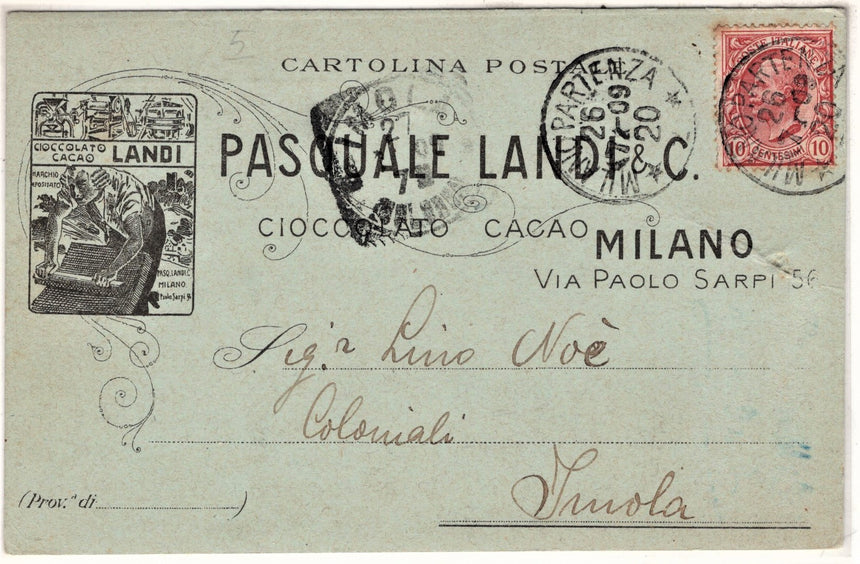 5
CARTOLINA POSTALE
CIOCCOLATO
CACAO LANDI
MARCHIO
DEPOSITATO
PASQ. LANDI. C.
MILANO
Paolo Sarpi 56
PASQUALE LANDI & C.
CIOCCOLATO CACAO MILANO
VIA PAOLO SARPI 56
POSTE ITALIANE
10 CENTESIMI 10
MILANO PARTENZA
26
09
20
MILANO PARTENZA
26
09
20
IMOLA
27
7
BOLOGNA
Sig.r Lino Noè
Coloniali
Imola
(Prov.a di )